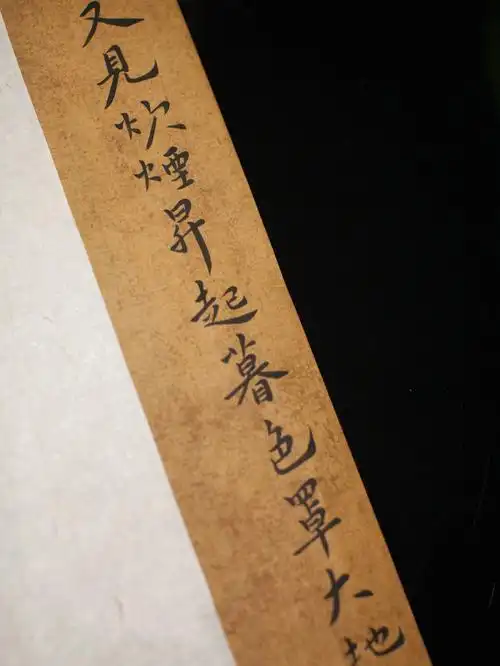 又見炊煙昇起暮色罩大地